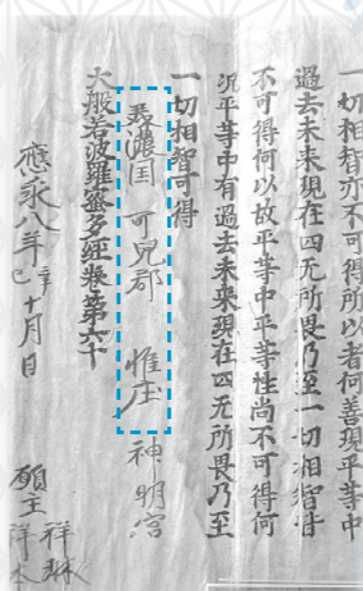 一切相智亦不可得所以者何善現平等中
過去未来現在四无所畏乃至一切相智皆
不可得何以故平等中平等性尚不可得何
況平等中有過去未来現在四无所畏乃至
一切相智可得
美濃国 可児郡 帷庄 神明宮
大般若波羅蜜多経巻第六十
應永八年辛巳十月日
願主 祥琳